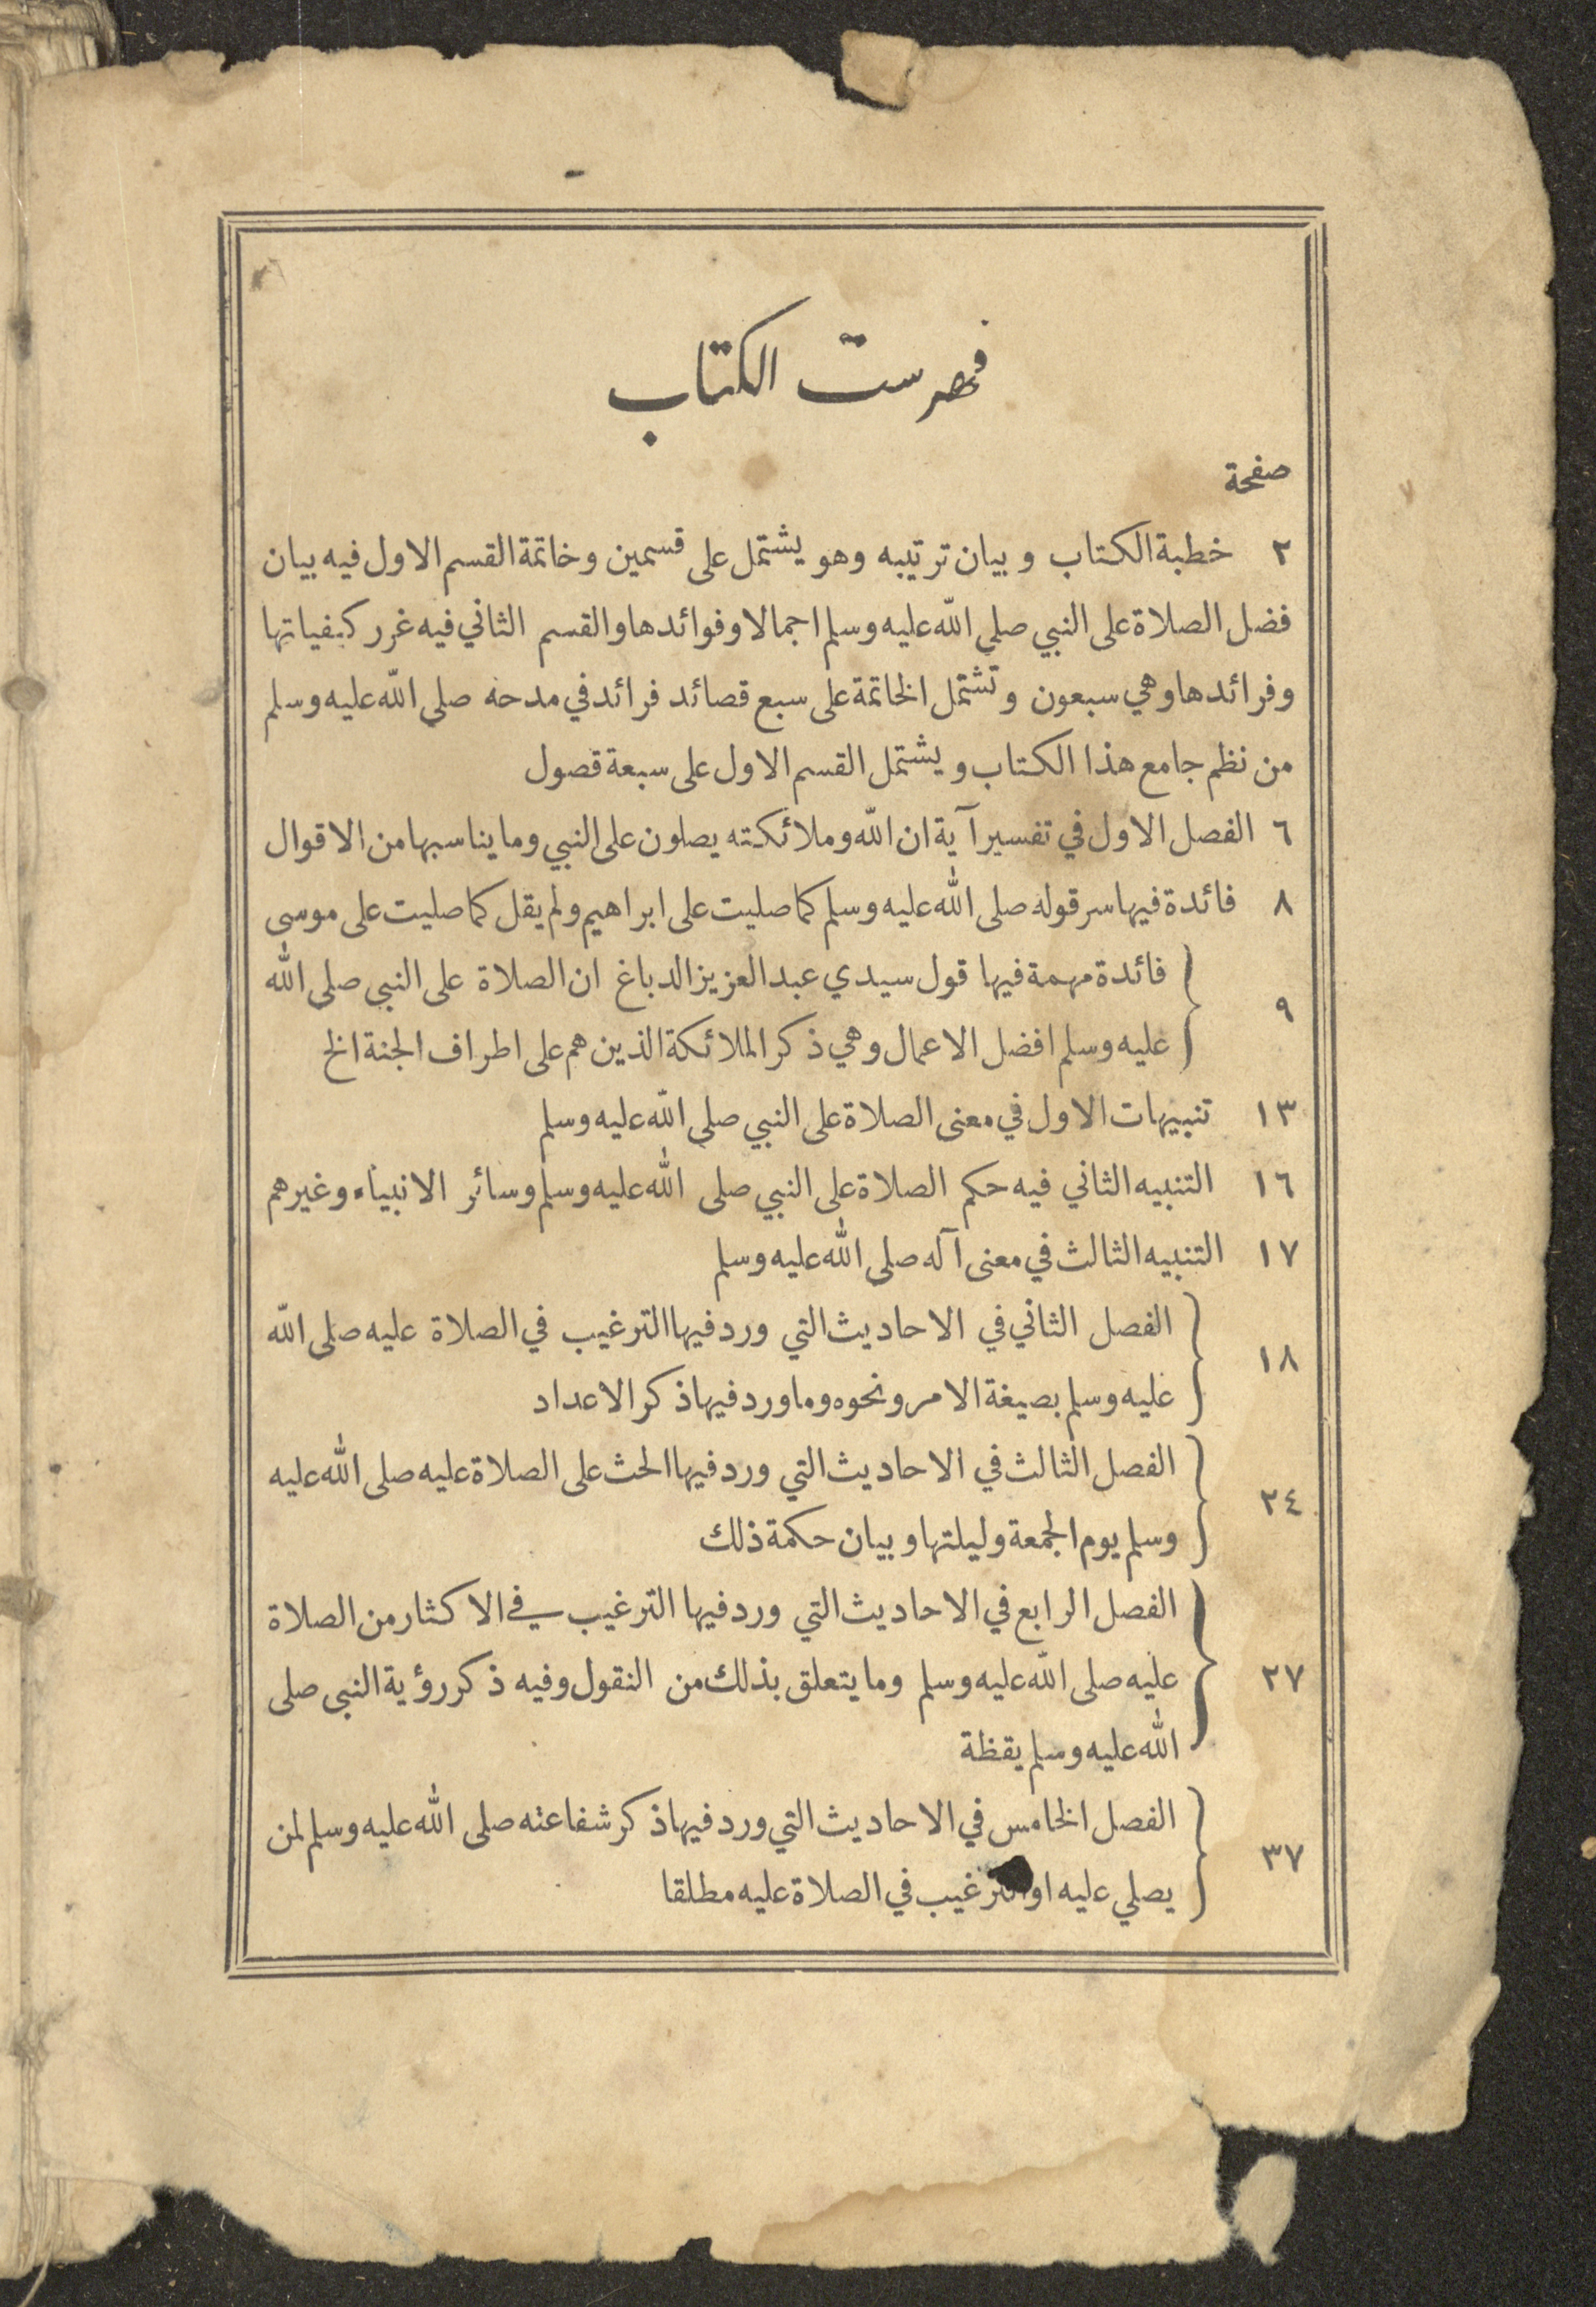 فهرست الكتاب
صفحة
٢ خطبة الكتاب وبيان ترتيبه وهو يشتمل على قسمين وخاتمة القسم الاول فيه بيان
فضل الصلاة على النبي صلى الله عليه وسلم اجمالا وفوائدها والقسم الثاني فيه غرر كيفياتها
وفرائدها وهي سبعون وتشتمل الخاتمة على سبع قصائد فرائد في مدحه صلى الله عليه وسلم
من نظم جامع هذا الكتاب ويشتمل القسم الاول على سبعة قصول
٦ الفصل الاول في تفسير آية ان الله وملائكته يصلون على النبي وما يناسبها من الاقوال
٨ فائدة فيها سر قوله صلى الله عليه وسلم كما صليت على ابراهيم ولم يقل كما صليت على موسى
٩ فائدة مهمة فيها قول سيدي عبد العزيز الدباغ ان الصلاة على النبي صلى الله
عليه وسلم افضل الاعمال وهي ذكر الملائكة الذين هم على اطراف الجنة الخ
١٣ تنبيهات الاول في معنى الصلاة على النبي صلى الله عليه وسلم
١٦ التنبيه الثاني فيه حكم الصلاة على النبي صلى الله عليه وسلم وسائر الانبياء وغيرهم
١٧ التنبيه الثالث في معنى آله صلى الله عليه وسلم
١٨ الفصل الثاني في الاحاديث التي ورد فيها الترغيب في الصلاة عليه صلى الله
عليه وسلم بصيغة الامر ونحوه وما ورد فيها ذكر الاعداد
٢٤ الفصل الثالث في الاحاديث التي ورد فيها الحث على الصلاة عليه صلى الله عليه
وسلم يوم الجمعة وليلتها وبيان حكمة ذلك
٢٧ الفصل الرابع في الاحاديث التي ورد فيها الترغيب في الاكثار من الصلاة
عليه صلى الله عليه وسلم وما يتعلق بذلك من النقول وفيه ذكر رؤية النبي صلى
الله عليه وسلم يقظة
٣٧ الفصل الخامس في الاحاديث التي ورد فيها ذكر شفاعته صلى الله عليه وسلم لمن
يصلي عليه او الترغيب في الصلاة عليه مطلقا